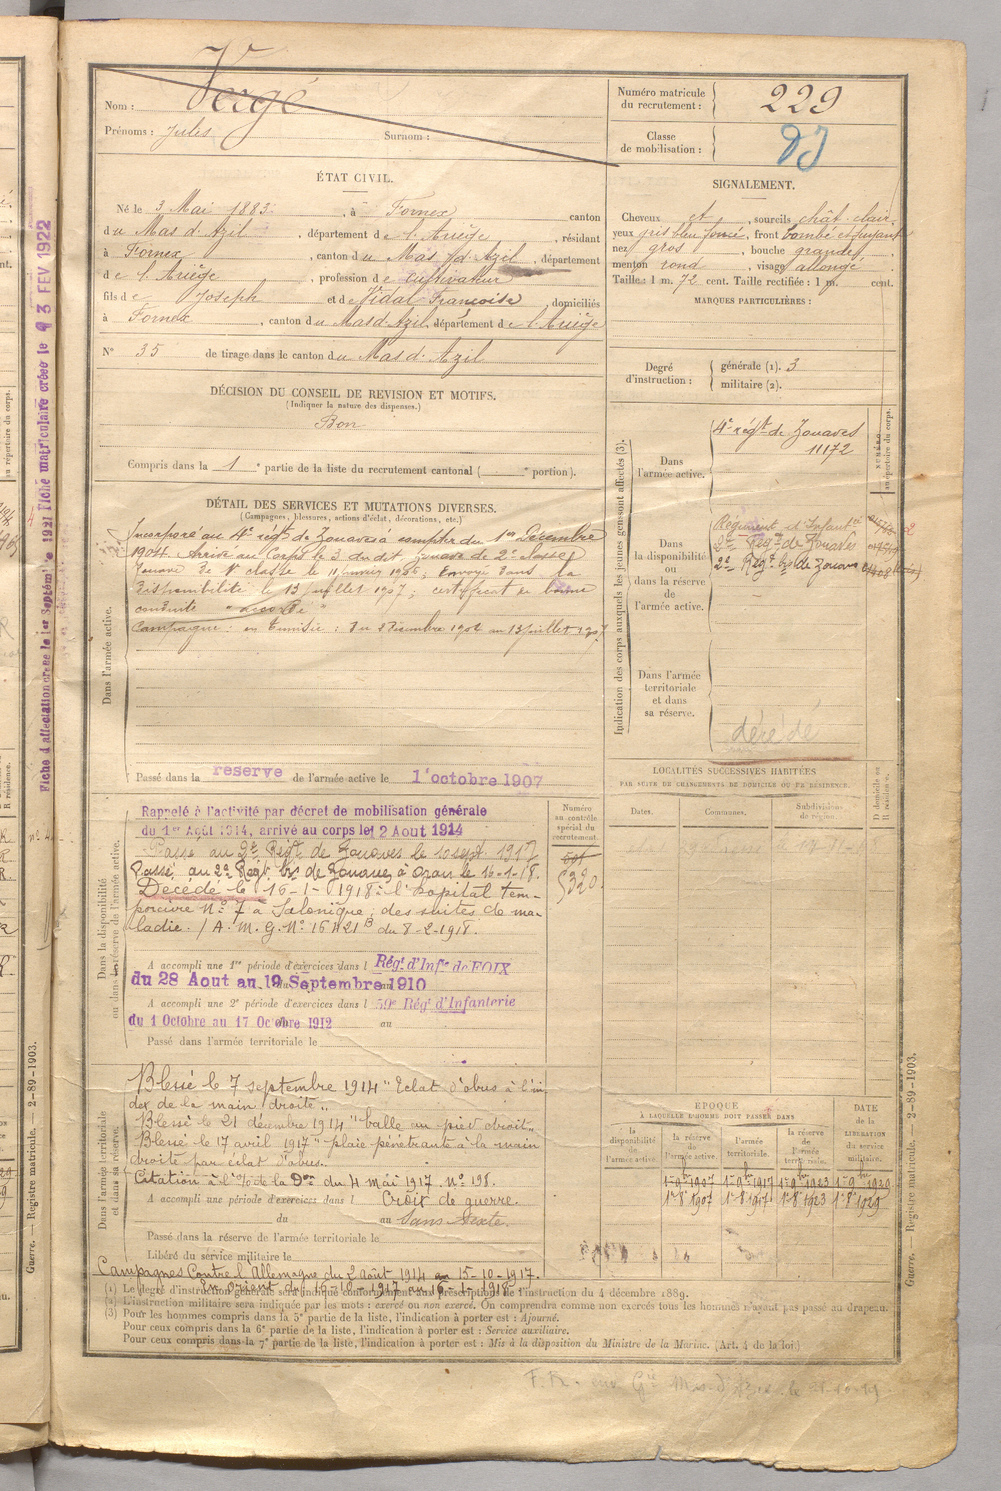 Nom : Vergé
Prénoms : Jules Surnom :
Numéro matricule du recrutement : 229
Classe de mobilisation :
ÉTAT CIVIL.
Né le 3 Mai 1883, à Fornex canton
du Mas d'Azil, département de l'Ariège, résidant
à Fornex, canton du Mas d'Azil, département
de l'Ariège, profession de cultivateur
fils de Joseph et de Vidal Françoise, domiciliés
à Fornex, canton du Mas d'Azil, département de l'Ariège
N° 35 de tirage dans le canton du Mas d'Azil
SIGNALEMENT.
Cheveux et, sourcils chât. clair.
yeux gris bleu foncé, front bombé et fuyant
nez gros, bouche grande,
menton rond, visage allongé
Taille : 1 m. 72 cent. Taille rectifiée : 1 m. cent.
MARQUES PARTICULIÈRES :
Degré d'instruction : générale (1). 3
militaire (2).
DÉCISION DU CONSEIL DE REVISION ET MOTIFS.
(Indiquer la nature des dispenses.)
Bon
Compris dans la 1e partie de la liste du recrutement cantonal ( e portion).
DÉTAIL DES SERVICES ET MUTATIONS DIVERSES.
(Campagnes, blessures, actions d'éclat, décorations, etc.)
Dans l'armée active.
Incorporé au 4e régt de Zouaves à compter du 1er Décembre
1904. Arrivé au Corps le 3 du dit zouave de 2e classe
Zouave de 1e classe le 11 janvier 1906; Envoyé dans la
disponibilité le 13 juillet 1907; certificat de bonne
conduite "accordé"
Campagne : en Tunisie : du 2 Décembre 1904 au 13 juillet 1907.
Passé dans la réserve de l'armée active le 1 octobre 1907
Indication des corps auxquels les jeunes gens sont affectés (3).
NUMÉRO au répertoire du corps.
Dans l'armée active.
4e régt de Zouaves
11172
Dans la disponibilité ou dans la réserve de l'armée active.
Régiment d'Infantie
2e Régt de Zouaves
2e Régt bis de Zouaves
Dans l'armée territoriale et dans sa réserve.
décédé
LOCALITÉS SUCCESSIVES HABITÉES
PAR SUITE DE CHANGEMENTS DE DOMICILE OU DE RÉSIDENCE.
Dates. Communes. Subdivisions de région. D domicile ou R résidence.
Dans la disponibilité ou dans la réserve de l'armée active.
Numéro au contrôle spécial du recrutement.
5320
Rappelé à l'activité par décret de mobilisation générale
du 1er Août 1914, arrivé au corps le 2 Aout 1914
Passé au 2e Régt de Zouaves le 10 sept 1917
Passé au 2e Régt bis de Zouaves à Oran le 16-1-18.
Décédé le 16-1-1918 à l'hopital tem-
poraire N° 7 à Salonique, des suites de ma-
ladie. / A. M. G. N° 16421 B du 8-2-1918.
A accompli une 1re période d'exercices dans l Régt d'Infie de FOIX
du 28 Aout au 19 Septembre 1910
A accompli une 2e période d'exercices dans l 59e Régt d'Infanterie
du 1 Octobre au 17 Octobre 1912 au
Passé dans l'armée territoriale le
Dans l'armée territoriale et dans sa réserve.
Blessé le 7 septembre 1914 "Eclat d'obus à l'in
dex de la main droite"
Blessé le 21 décembre 1914 "balle au pied droit"
Blessé le 17 avril 1917 "plaie pénétrante à la main
droite par éclat d'obus."
Citation à l'o/ de la Don du 4 mai 1917 n° 198.
A accompli une période d'exercices dans l Croix de guerre.
du au Sans texte.
Passé dans la réserve de l'armée territoriale le
Libéré du service militaire le
Campagnes Contre l'Allemagne du 2 août 1914 au 15-10-1917.
En orient du 16-10-1917 au 16-1-1918
EPOQUE
À LAQUELLE L'HOMME DOIT PASSER DANS
la disponibilité de l'armée active. la réserve de l'armée active. l'armée territoriale. la réserve de l'armée territoriale. DATE de la LIBÉRATION du service militaire.
1-9bre 1907 1-9bre 1917 1-9bre 1923 1-9bre 1929
1-8 1907 1-8 1917 1-8 1923 1-8 1929
(1) Le degré d'instruction générale sera indiqué conformément aux prescriptions de l'instruction du 4 décembre 1889.
(2) L'instruction militaire sera indiquée par les mots : exercé ou non exercé. On comprendra comme non exercés tous les hommes n'ayant pas passé au drapeau.
(3) Pour les hommes compris dans la 5e partie de la liste, l'indication à porter est : Ajourné.
Pour ceux compris dans la 6e partie de la liste, l'indication à porter est : Service auxiliaire.
Pour ceux compris dans la 7e partie de la liste, l'indication à porter est : Mis à la disposition du Ministre de la Marine. (Art. 4 de la loi)
Guerre. — Registre matricule. — 2-89-1903.
Guerre. — Registre matricule. — 2-89-1903.
Fiche d'affectation créée le 1er Septembre 1921 Fiche matriculaire créée le 3 FEV 1922